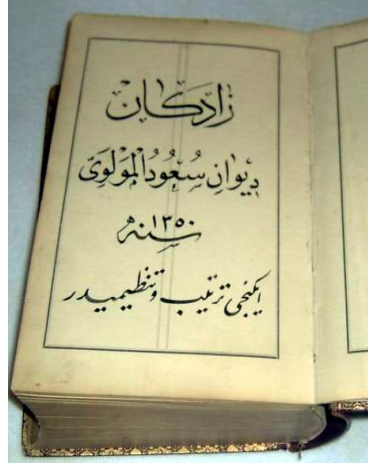 زادكان
ديوانِ سُعُودُالمَولَوِىّ
سنه ١٣٥٠
ايكنجى ترتيب وتنظيميدر